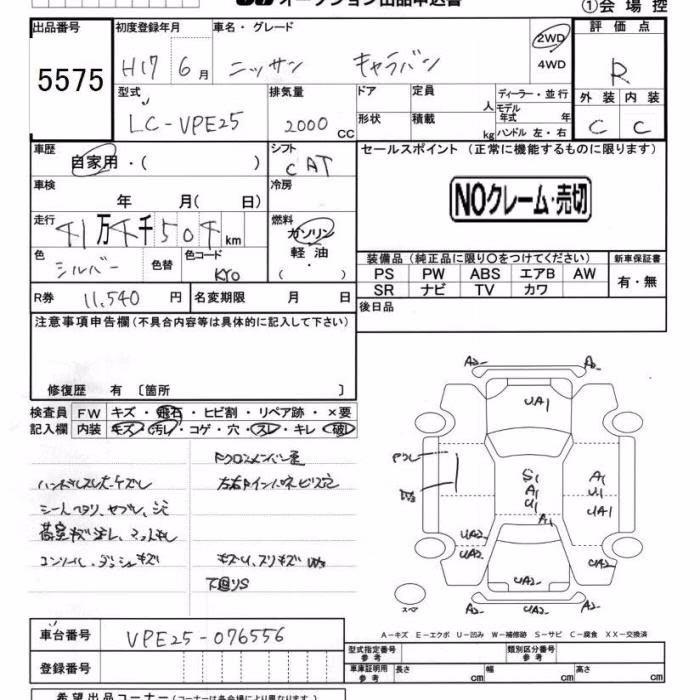 オークション出品申込書
①会場控
出品番号
5575
初度登録年月
H17 6月
車名・グレード
ニッサン キャラバン
2WD
4WD
評価点
R
型式
LC-VPE25
排気量
2000 cc
ドア
定員
人
形状
積載
kg
ディーラー・並行
モデル年式 年
ハンドル 左・右
外装 内装
C C
車歴
自家用・( )
シフト
CAT
セールスポイント (正常に機能するものに限ります)
NOクレーム・売切
車検
年 月( 日)
冷房
走行
万 千 km
燃料
ガソリン
軽油
( )
色
シルバー
色替
色コード
KY0
装備品(純正品に限り○をつけてください)
新車保証書
PS PW ABS エアB AW
SR ナビ TV カワ
有・無
R券 11,540 円
名変期限 月 日
後日品
注意事項申告欄(不具合内容等は具体的に記入して下さい)
修復歴 有 〔箇所 〕
検査員記入欄
FW キズ・飛石・ヒビ割・リペア跡・×要
内装 キズ・汚レ・コゲ・穴・スレ・キレ・破レ
シートヘタリ、
コンソール、ダッシュキズ
下回りS
A2 A2
UA1
S1
A1
U1
A1
U1
UA1
A1
UA2
UA2
UA2
UA2
UA2
スペア
A-キズ E-エクボ U-凹み W-補修跡 S-サビ C-腐食 XX-交換済
車台番号
VPE25-076556
登録番号
型式指定番号 参考
類別区分番号 参考
車庫証明用 参考
長さ cm
幅 cm
高さ cm
希望出品コーナー(コーナーは各会場により異なります)